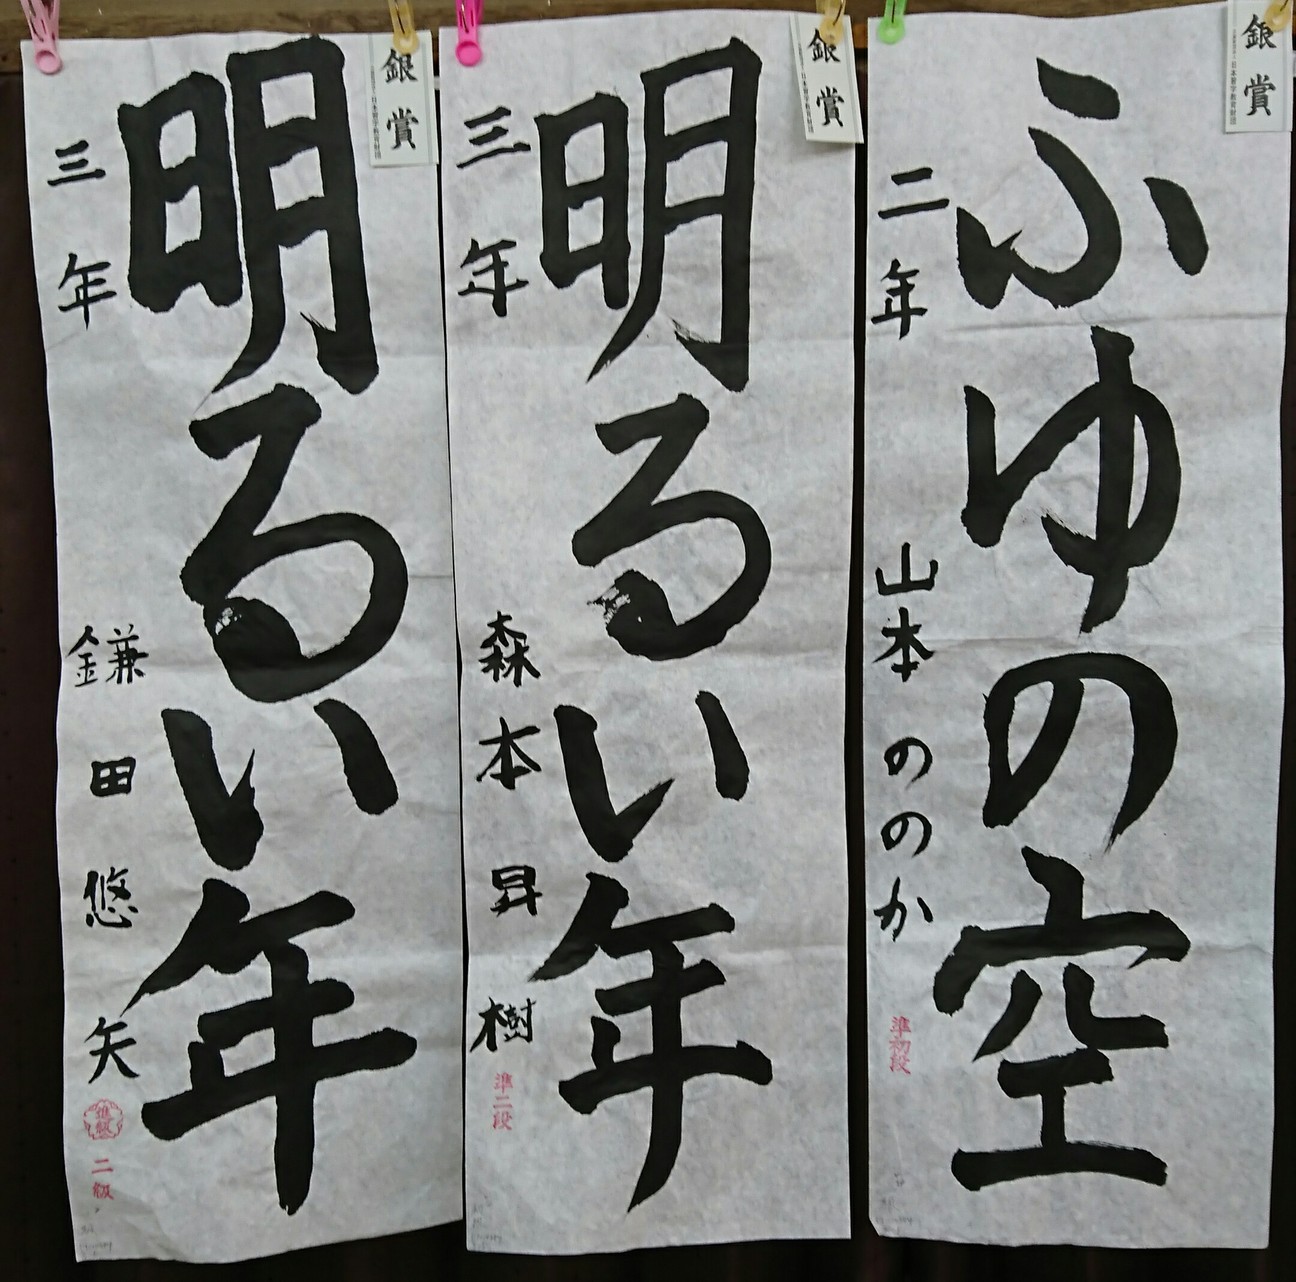 銀賞
ふゆの空
二年 山本ののか
準初段
銀賞
明るい年
三年 森本昇樹
準二段
銀賞
明るい年
三年 鎌田悠矢
進級
二級